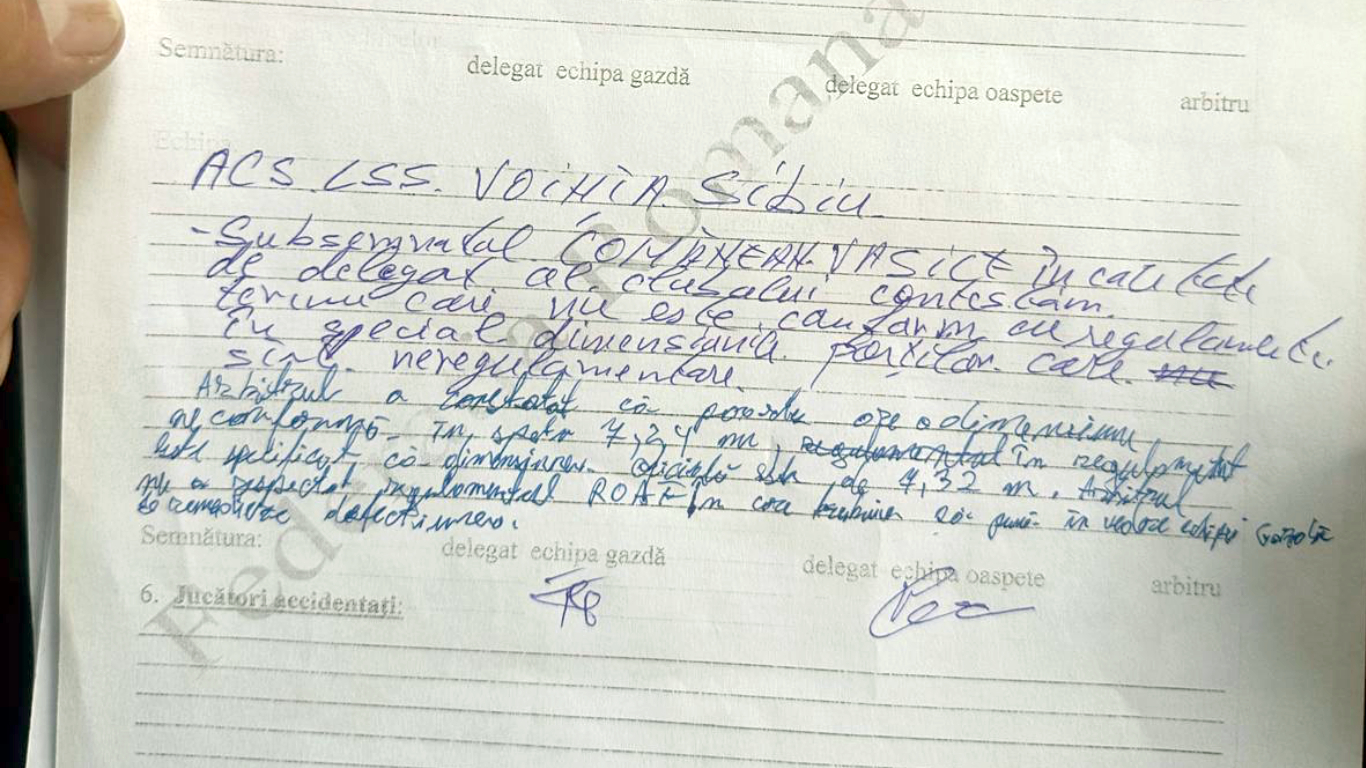 Semnătura: delegat echipa gazdă delegat echipa oaspete arbitru
ACS LSS. VOINȚA. Sibiu
- Subsemnatul COMĂNEAN VASILE în calitate
de delegat al clubului contestăm.
terenu care nu este conform cu regulamentu
În special dimensiunia porților. care
sînt. neregulamentare.
Arbitrul a constatat că poarta are o dimensiune
neconformă. În speță 7,24 m, regulamentul În regulamentul
este specificat că dimensiunea oficială este de 7,32 m. Arbitrul
nu a respectat regulamentul ROAF în care trebuia să pună în vedere echipei Gazdă
să remedieze defecțiunea.
Semnătura: delegat echipa gazdă delegat echipa oaspete arbitru
6. Jucători accidentați:
Federația Romana